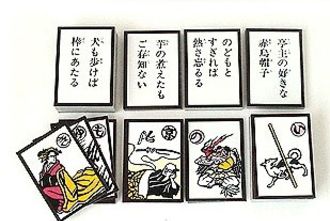 亭主の好きな
赤烏帽子
のどもと
すぎれば
熱さ忘るる
芋の煮えたも
ご存知ない
犬も歩けば
棒にあたる
い
の
京